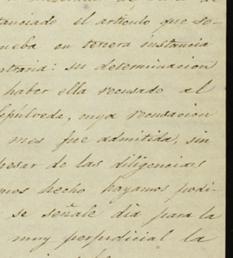 tanciado el articulo que se
nueba en tercera instancia
ntraria: su determinacion
haber ella recusado al
Sepulveda, cuya recusacion
mos fue admitida, sin
pesar de las diligencias
mos hecho hayamos podi-
se señale dia para la
muy perjudicial la